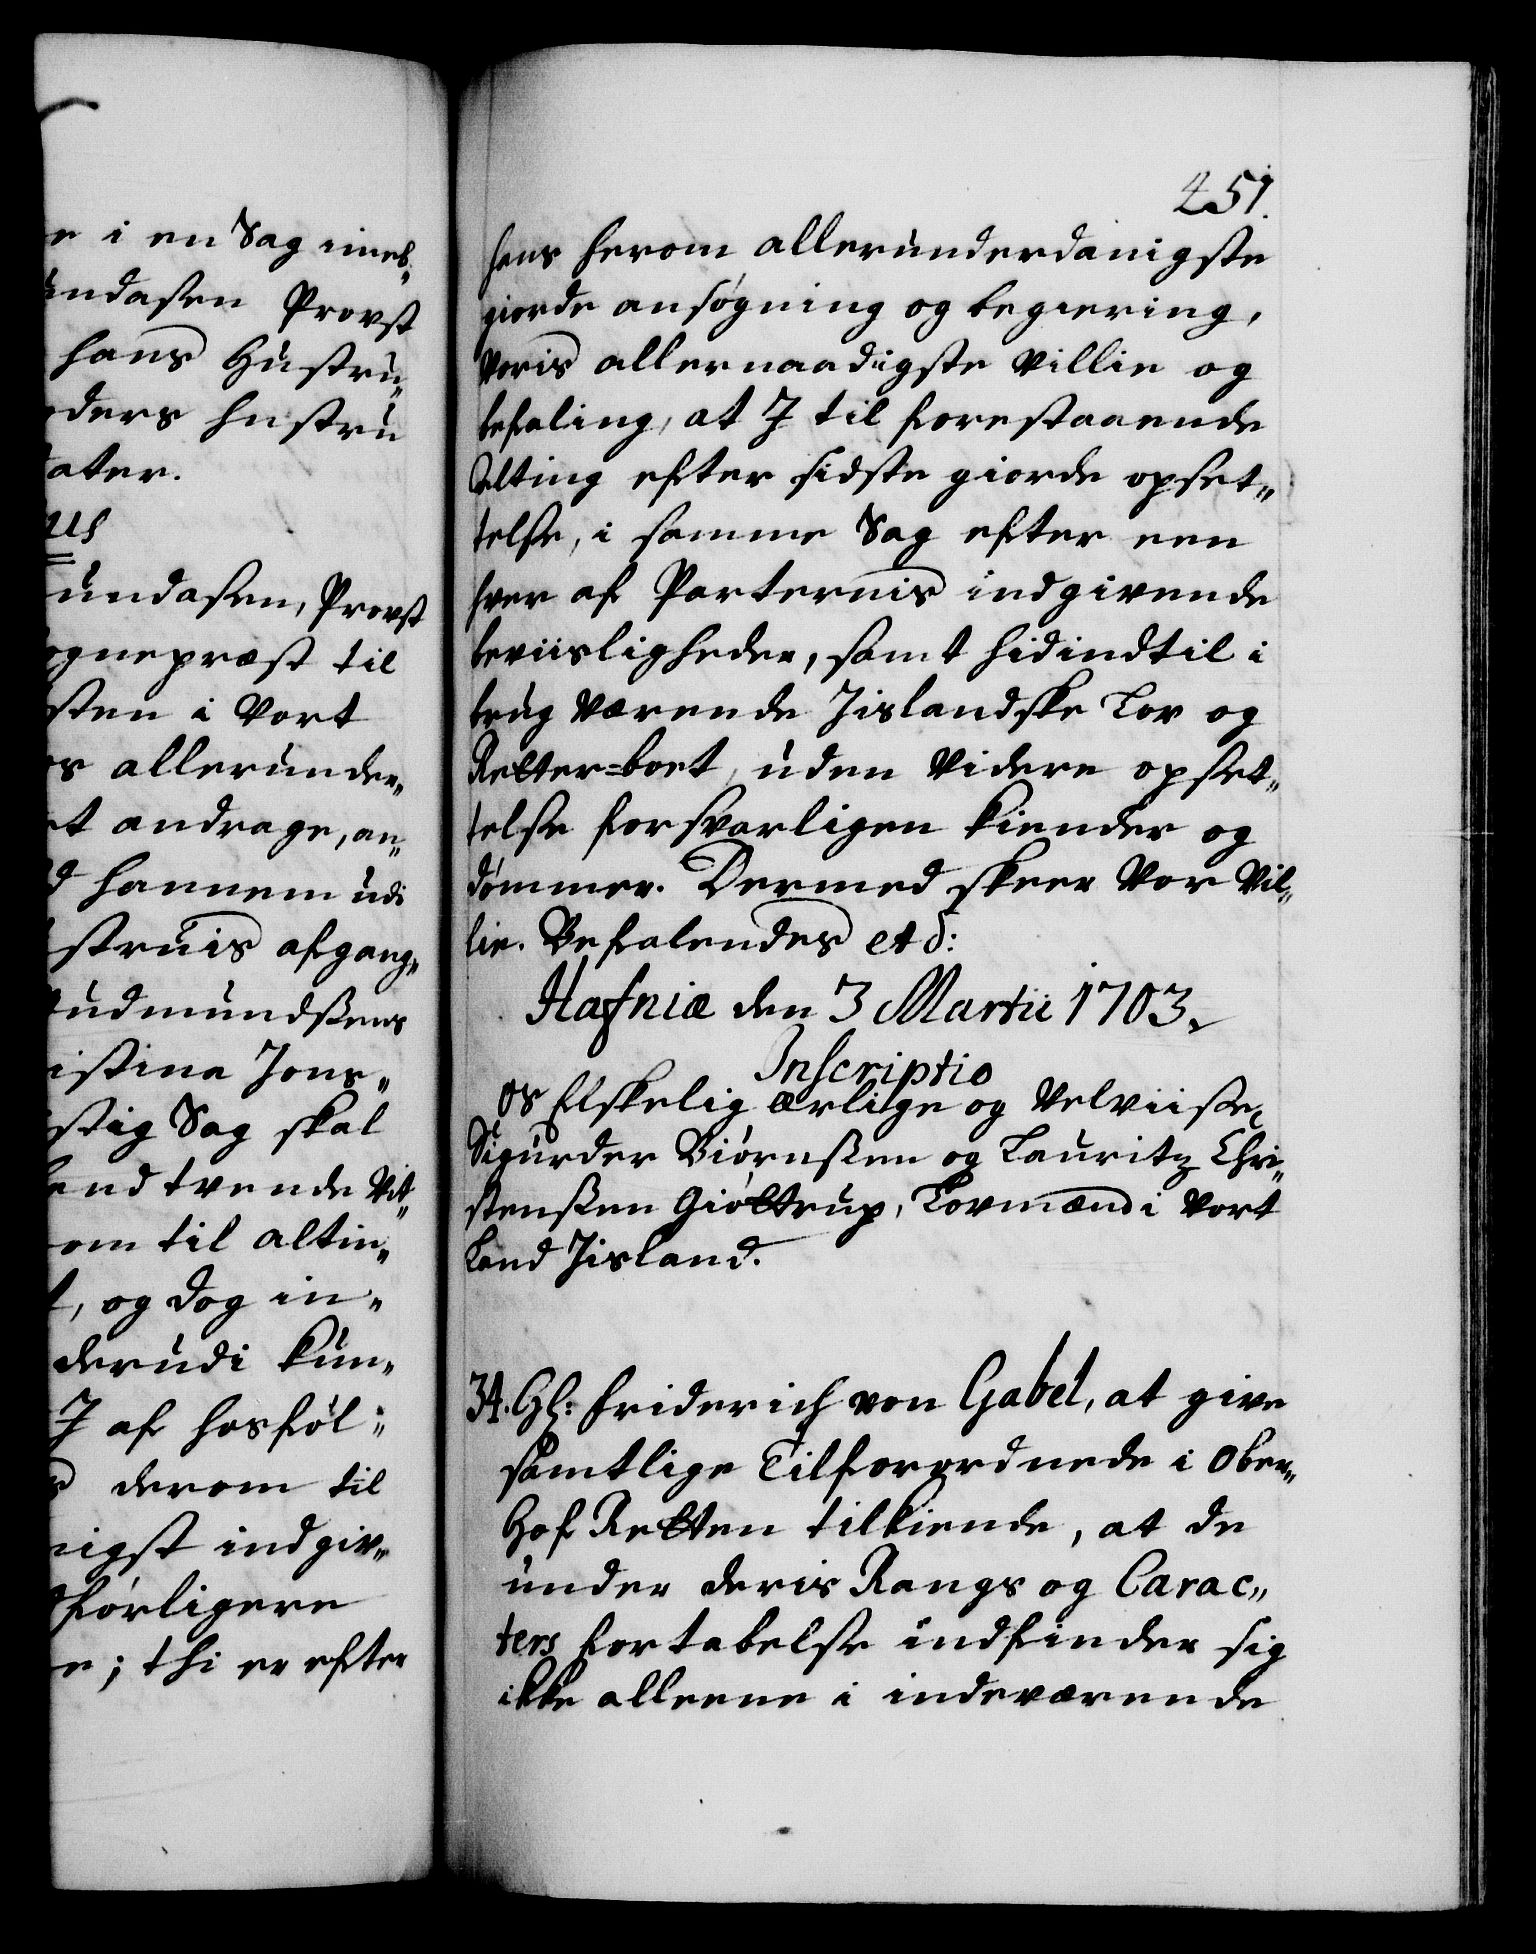 e i en Sag imel„
undasen Provst
hans Hustru„
ders hustru
ater.
us
undasen, Provst
ognepræst til
sten i Vort
os allerunder„
et andrage, an„
d hannem udi
struis afgang„
udmundssens
istina Jons„
stig Sag skal
end tvende Vit„
om til altin„
t, og dog in„
derudi kun„
J af hosføl„
derom til
nigst indgiv„
førligere
e; thi er efter
451.
hans herom allerunderdanigste
giorde ansøgning og begiering,
Voris allernaadigste Villie og
befaling, at J til forestaaende
Alting efter sidste giorde opset„
telse, i samme Sag efter een
hver af Parternis indgivende
beviisligheder, samt hidindtil i
brug Værende Jislandske Lov og
Retter-boet, uden Videre opset„
telse forsvarligen kiender og
dømmer. Dermed skeer Vor Vil„
lie. Befalendes etc:
Hafniæ den 3 Martii 1703.
Inscriptio
Os Elskelig ærlige og Velviise
Sigurder Biørnssen og Lauritz Chri„
stenssen Giøttrup, Lovmænd i Vort
Land Jisland.
34. Hr: Friderich von Gabel, at give
samtlige Tilforordnede i Ober„
Hof Retten tilkiende, at de
under deris Rangs og Carac„
ters fortabelse indfinder sig
ikke alleene i indeværende